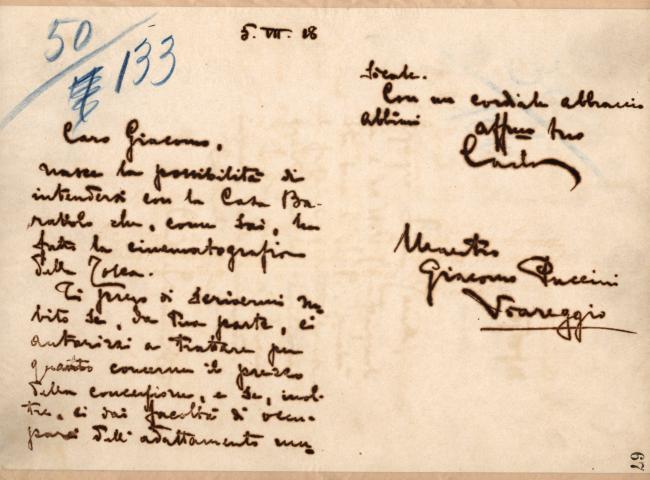 50
133
5. VII. 18
Caro Giacomo,
nasce la possibilità di
intendersi con la Casa Ba-
rattolo che, come sai, ha
fatto la cinematografia
della Tosca.
Ti prego di scrivermi su-
bito se, da tua parte, ci
autorizzi a trattare per
quanto concerne il prezzo
della concessione, e se, inol-
tre, ci dai facoltà di occu-
parci dell'adattamento mu-
sicale.
Con un cordiale abbraccio
abbimi affmo tuo
Carlo
Maestro
Giacomo Puccini
Viareggio
67